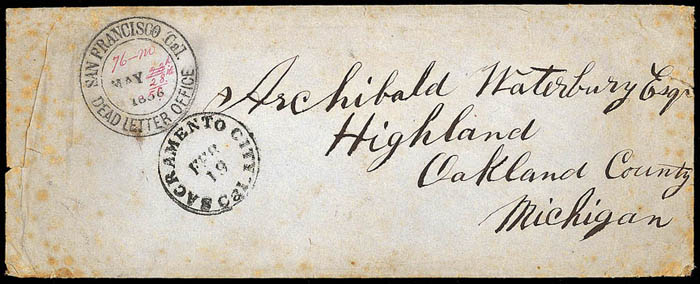 SAN FRANCISCO Cal.
76-m
MAY
1856
DEAD LETTER OFFICE
SACRAMENTO CITY 185
FEB
19
Archibald Waterbury Esqr
Highland
Oakland County
Michigan